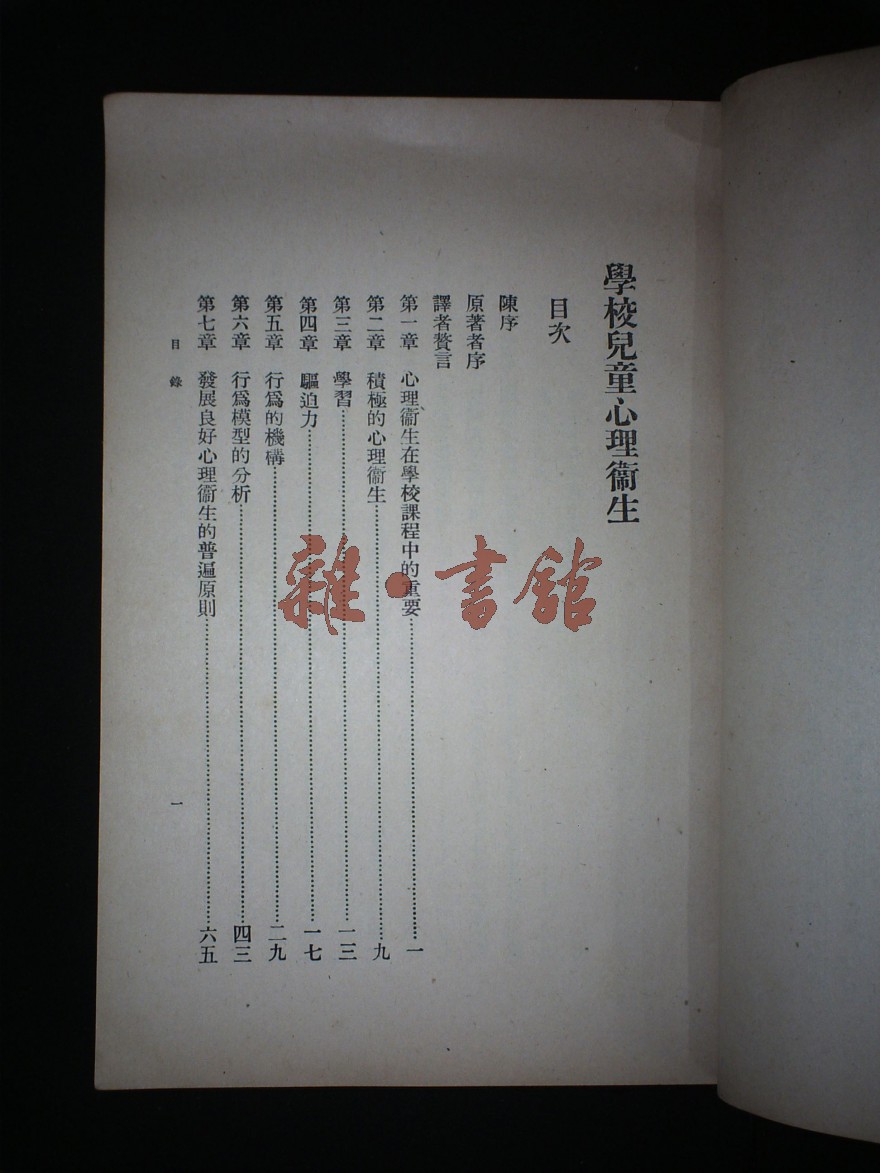 學校兒童心理衞生
目次
陳序
原著者序
譯者贅言
第一章 心理衞生在學校課程中的重要……一
第二章 積極的心理衞生……九
第三章 學習……一三
第四章 驅迫力……一七
第五章 行爲的機構……二九
第六章 行爲模型的分析……四三
第七章 發展良好心理衞生的普遍原則……六五
目錄
一
雜·書館